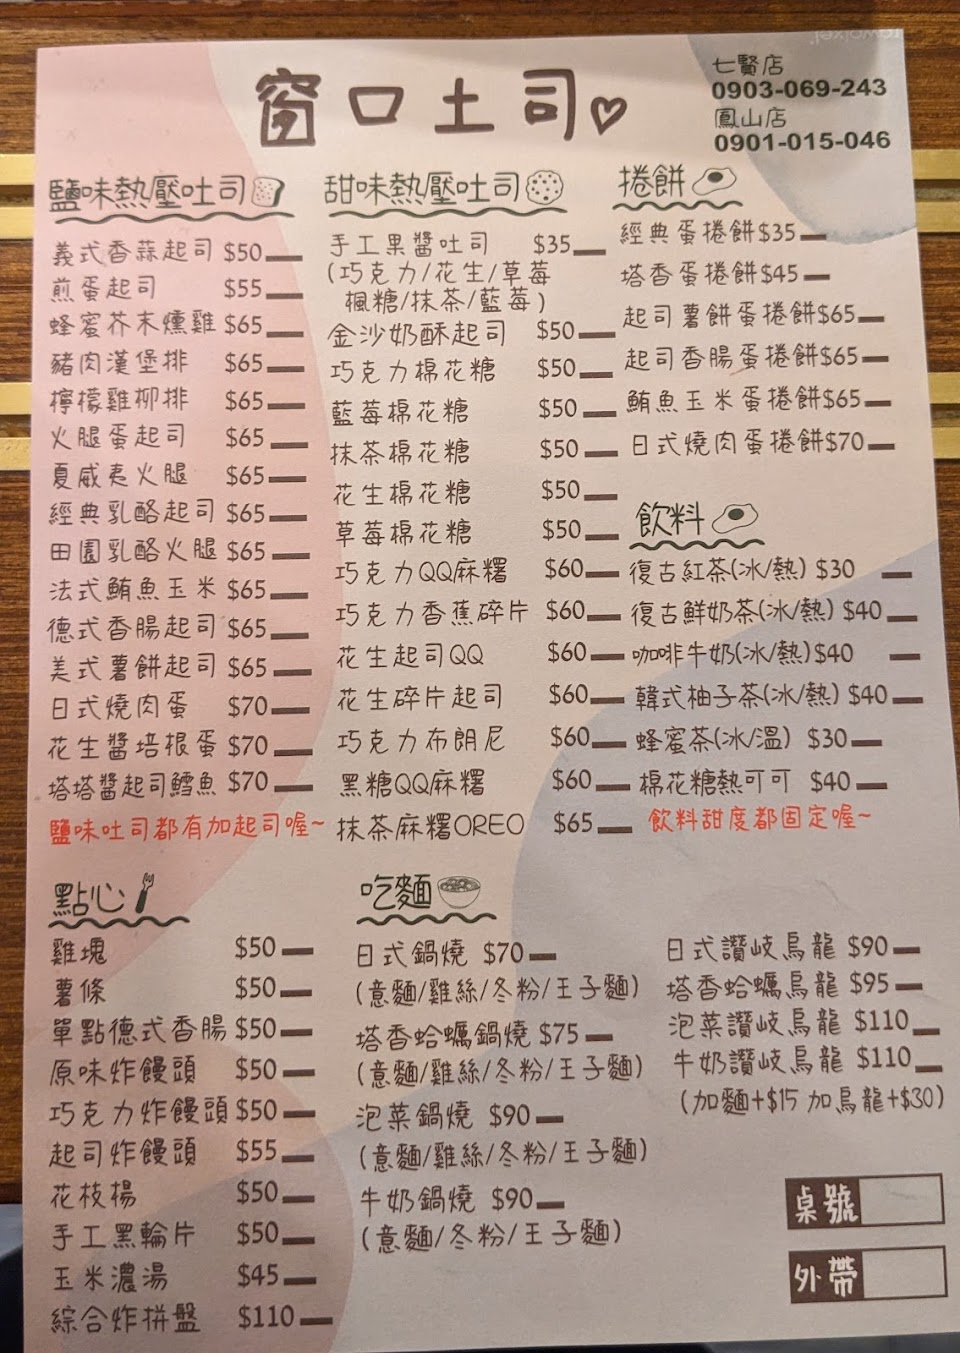 窗口土司
七賢店
0903-069-243
鳳山店
0901-015-046
鹽味熱壓吐司
義式香蒜起司 $50
煎蛋起司 $55
蜂蜜芥末燻雞 $65
豬肉漢堡排 $65
檸檬雞柳排 $65
火腿蛋起司 $65
夏威夷火腿 $65
經典乳酪起司 $65
田園乳酪火腿 $65
法式鮪魚玉米 $65
德式香腸起司 $65
美式薯餅起司 $65
日式燒肉蛋 $70
花生醬培根蛋 $70
塔塔醬起司鱈魚 $70
鹽味吐司都有加起司喔~
甜味熱壓吐司
手工果醬吐司 $35
(巧克力/花生/草莓
楓糖/抹茶/藍莓)
金沙奶酥起司 $50
巧克力棉花糖 $50
藍莓棉花糖 $50
抹茶棉花糖 $50
花生棉花糖 $50
草莓棉花糖 $50
巧克力QQ麻糬 $60
巧克力香蕉碎片 $60
花生起司QQ $60
花生碎片起司 $60
巧克力布朗尼 $60
黑糖QQ麻糬 $60
抹茶麻糬OREO $65
捲餅
經典蛋捲餅$35
塔香蛋捲餅$45
起司薯餅蛋捲餅$65
起司香腸蛋捲餅$65
鮪魚玉米蛋捲餅$65
日式燒肉蛋捲餅$70
飲料
復古紅茶(冰/熱) $30
復古鮮奶茶(冰/熱) $40
咖啡牛奶(冰/熱)$40
韓式柚子茶(冰/熱) $40
蜂蜜茶(冰/溫) $30
棉花糖熱可可 $40
飲料甜度都固定喔~
點心
雞塊 $50
薯條 $50
單點德式香腸 $50
原味炸饅頭 $50
巧克力炸饅頭 $50
起司炸饅頭 $55
花枝楊 $50
手工黑輪片 $50
玉米濃湯 $45
綜合炸拼盤 $110
吃麵
日式鍋燒 $70
(意麵/雞絲/冬粉/王子麵)
塔香蛤蠣鍋燒 $75
(意麵/雞絲/冬粉/王子麵)
泡菜鍋燒 $90
(意麵/雞絲/冬粉/王子麵)
牛奶鍋燒 $90
(意麵/冬粉/王子麵)
日式讚岐烏龍 $90
塔香蛤蠣烏龍 $95
泡菜讚岐烏龍 $110
牛奶讚岐烏龍 $110
(加麵+$15 加烏龍+$30)
桌號
外帶